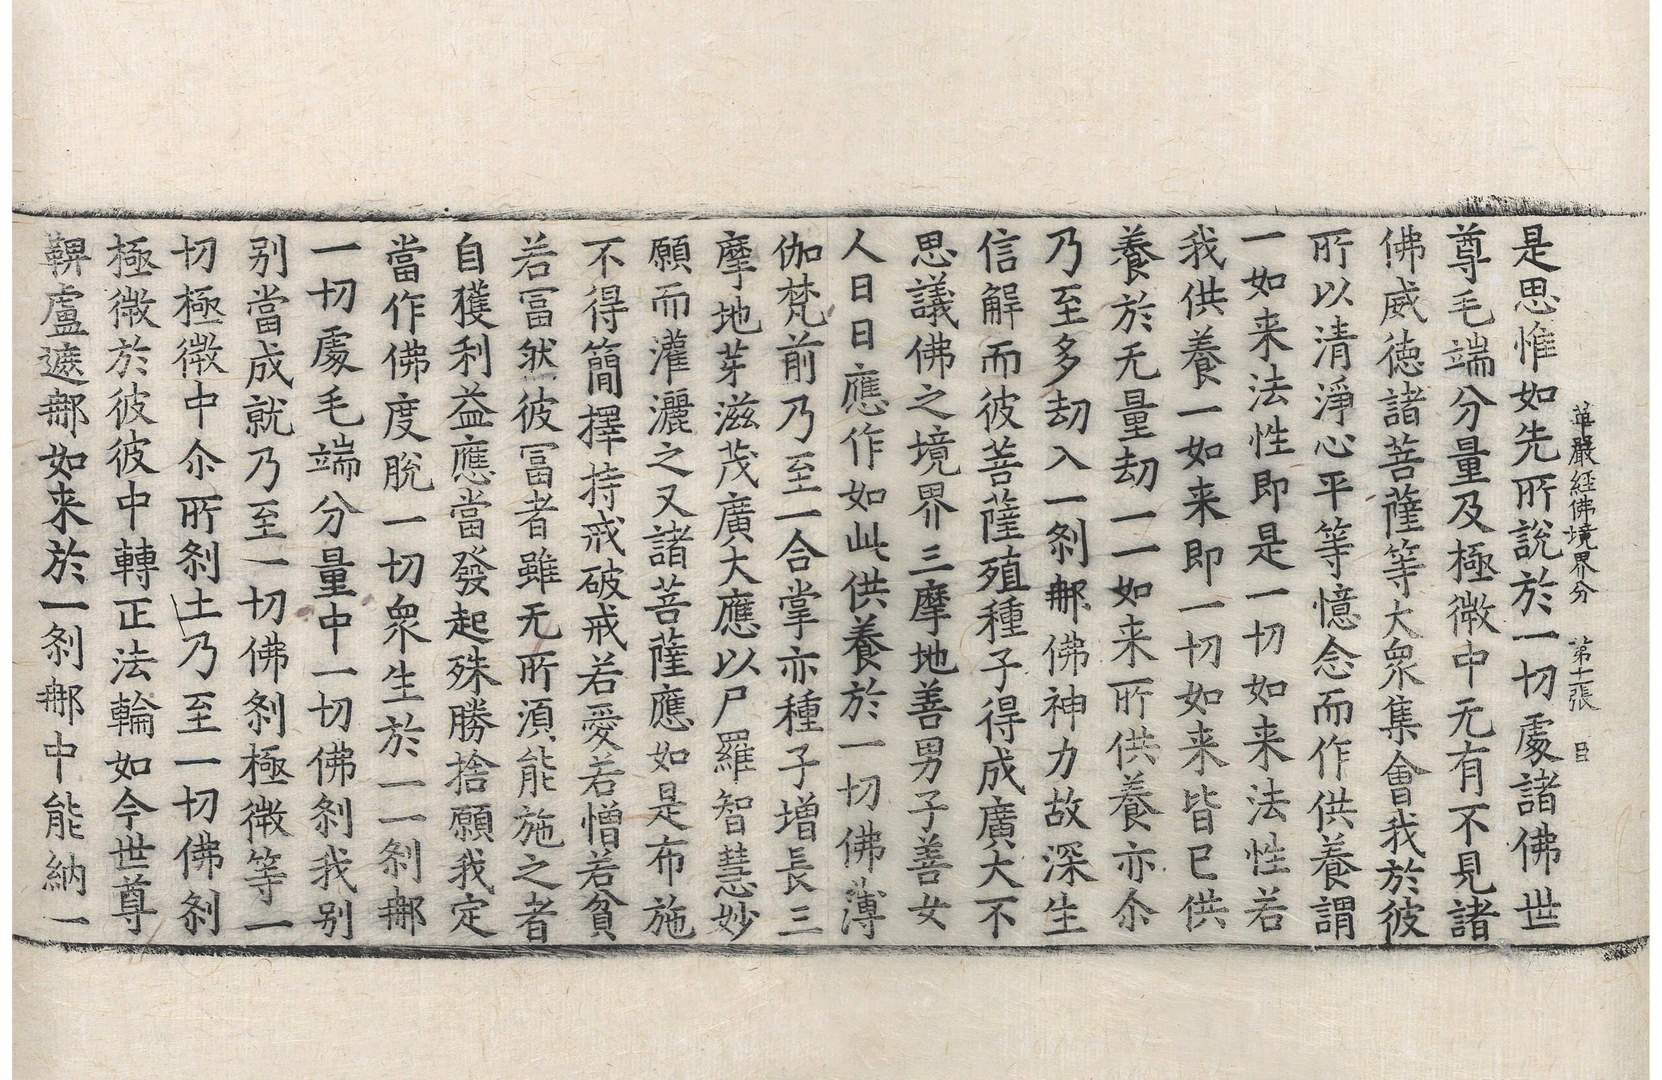 華嚴經佛境界分　第十一張　目
是思惟如先所說於一切處諸佛世
尊毛端分量及極微中无有不見諸
佛威德諸菩薩等大衆集會我於彼
所以清淨心平等憶念而作供養謂
一如来法性即是一切如来法性若
我供養一如来即一切如来皆已供
養於无量劫一一如来所供養亦尒
乃至多劫入一刹那佛神力故深生
信解而彼菩薩殖種子得成廣大不
思議佛之境界三摩地善男子善女
人日日應作如此供養於一切佛薄
伽梵前乃至一合掌亦種子增長三
摩地芽滋茂廣大應以尸羅智慧妙
願而灌灑之又諸菩薩應如是布施
不得簡擇持戒破戒若愛若憎若貧
若冨然彼冨者雖无所湏能施之者
自獲利益應當發起殊勝捨願我定
當作佛度脫一切衆生於一一刹那
一切處毛端分量中一切佛刹我别
别當成就乃至一切佛刹極微等一
切極微中尒所刹土乃至一切佛刹
極微於彼彼中轉正法輪如今世尊
鞞盧遮那如来於一刹那中能納一